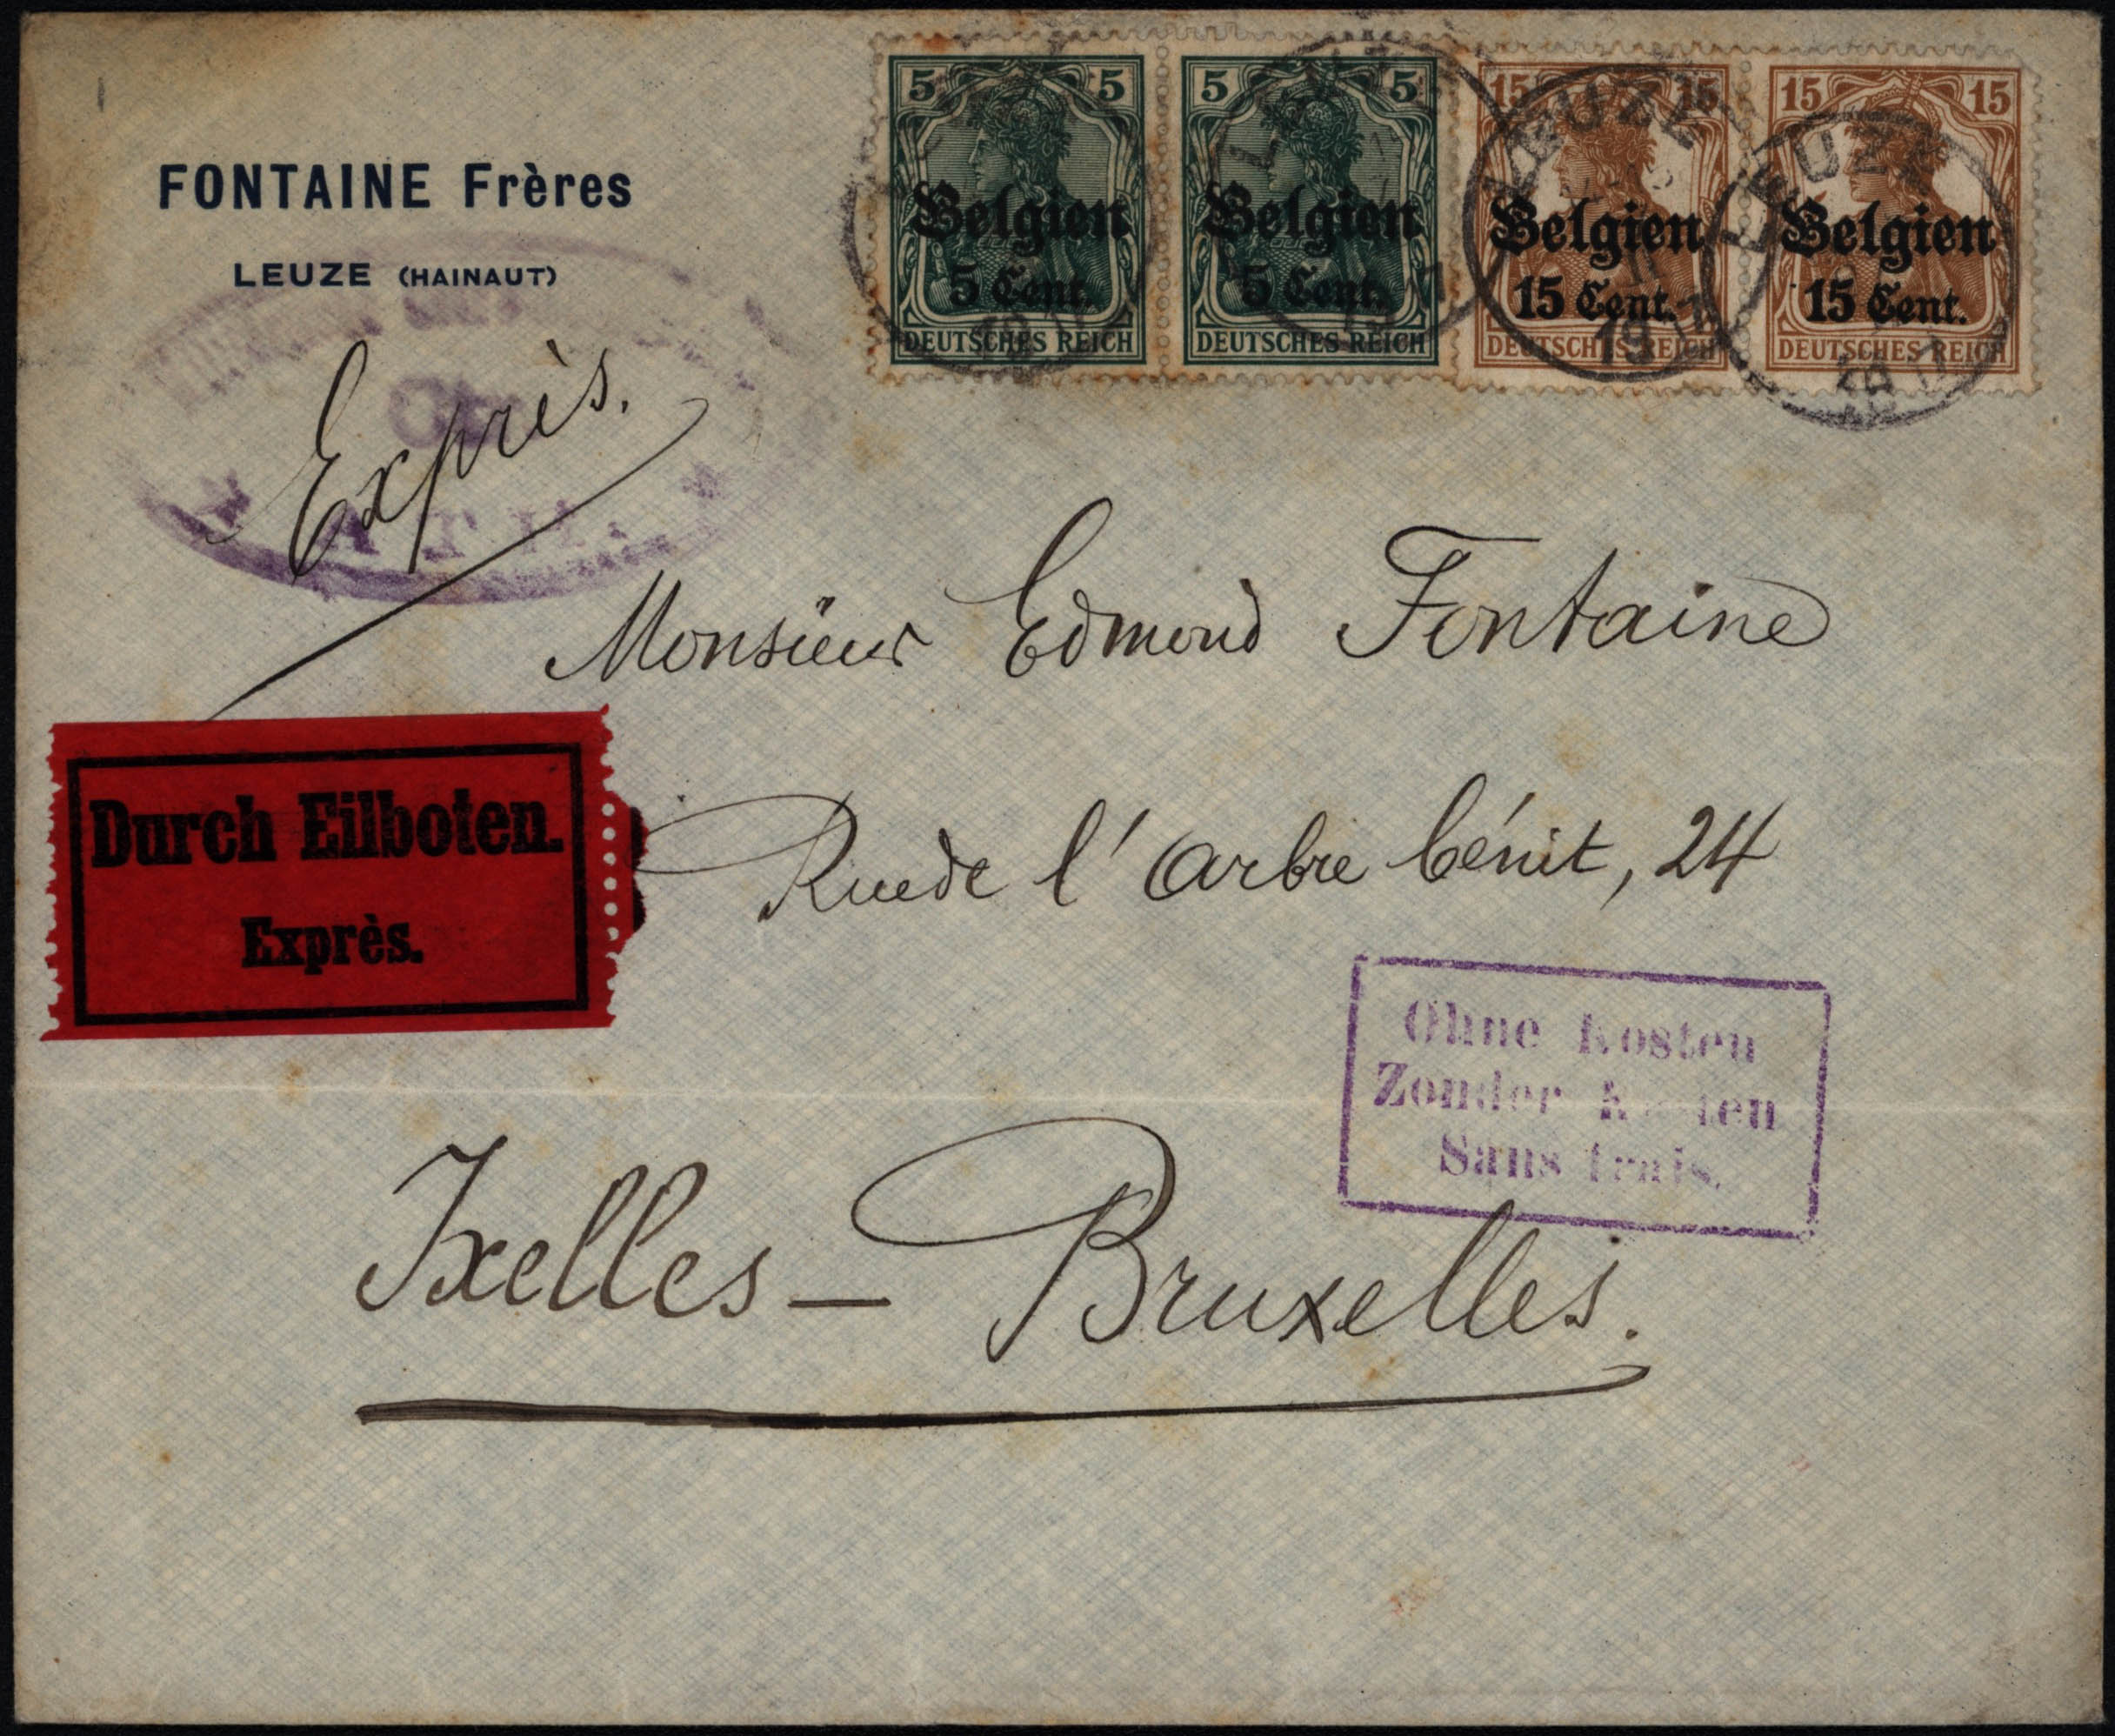 FONTAINE Frères
LEUZE (HAINAUT)
5 5
Belgien
5 Cent.
DEUTSCHES REICH
5 5
Belgien
5 Cent.
DEUTSCHES REICH
15 15
Belgien
15 Cent.
DEUTSCHES REICH
15 15
Belgien
15 Cent.
DEUTSCHES REICH
LEUZE
LEUZE
ATH
Exprès.
Monsieur Edmond Fontaine
Durch Eilboten.
Exprès.
Rue de l'Arbre bénit, 24
Ohne Kosten
Zonder Kosten
Sans frais.
Ixelles - Bruxelles.